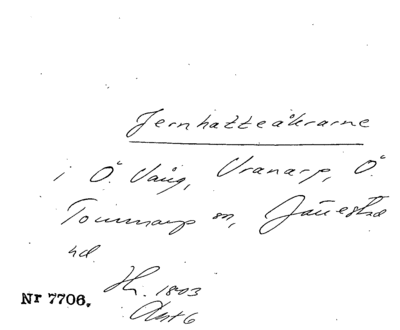 Jernhatteåkrarne
i Ö. Vång, Vranarp, Ö.
Tommarp sn, Järrestad
hd
H. 1803
Akt 6
Nr 7706.